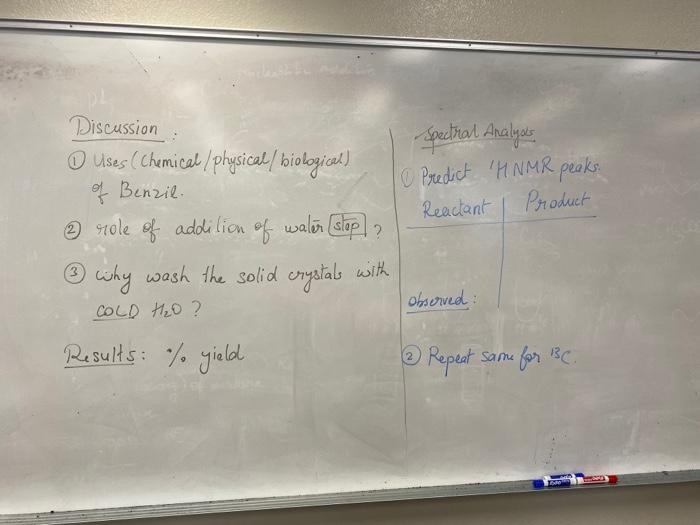 Discussion :
① Uses (Chemical/physical/biological)
of Benzil.
② role of addition of water [stop] ?
③ Why wash the solid crystals with
COLD H₂O ?
Results: % yield
Spectral Analysis
① Predict ¹H NMR peaks.
Reactant | Product
Observed :
② Repeat same for ¹³C.